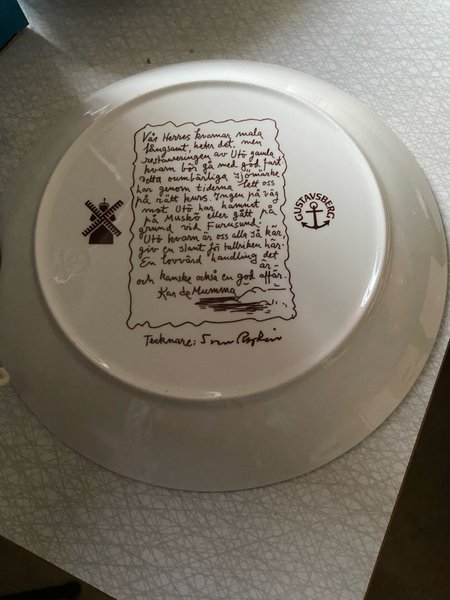 Vår Herres kvarnar mala
långsamt, heter det, men
restaureringen av Utö gamla
kvarn bör gå med god fart.
Detta oumbärliga sjömärke
har genom tiderna lett oss
på rätt kurs. Ingen på väg
mot Utö har hamnat
på Muskö eller gått på
grund vid Furusund.
Utö kvarn är oss alla så kär
giv en slant för tallriken här.
En lovvärd handling det
är -
och kanske också en god affär.
Kar de Mumma
GUSTAVSBERG
Tecknare: